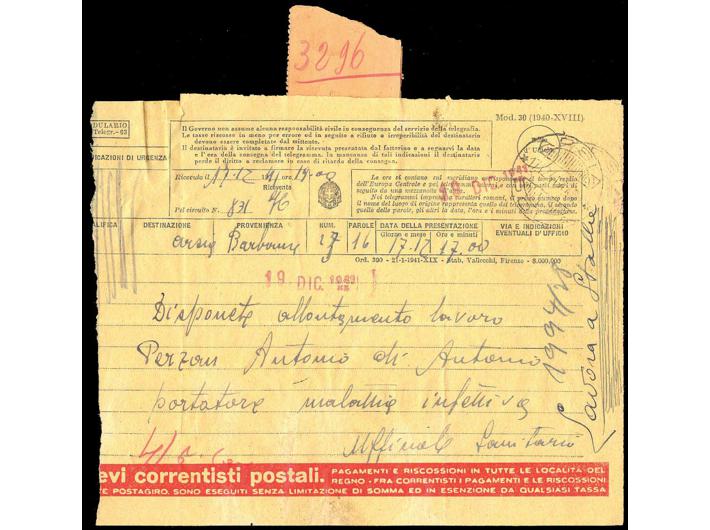 3296
DULARIO
Telegr.-63
Mod. 30 (1940-XVIII)
NDICAZIONI DI URGENZA
Il Governo non assume alcuna responsabilità civile in conseguenza del servizio della telegrafia.
Le tasse riscosse in meno per errore od in seguito a rifiuto o irreperibilità del destinatario
devono essere completate dal mittente.
Il destinatario è invitato a firmare la ricevuta presentata dal fattorino e a segnarvi la data
e l'ora della consegna del telegramma. In mancanza di tali indicazioni il destinatario
perde il diritto a reclamare in caso di ritardo della consegna.
Ricevuto il 17.12 1941 ore 19.00
Ricevente
Pel circuito N. 831
Le ore si contano sul meridiano
dell'Europa Centrale e
seguito da una mezzanotte
Nei telegrammi impressi a caratteri romani, il primo numero dopo
il nome del luogo d'origine rappresenta quello del telegramma, il secondo
quello delle parole, gli altri la data, l'ora e i minuti della presentazione.
19 DIC. 1941
ALIFICA DESTINAZIONE PROVENIENZA NUM. PAROLE DATA DELLA PRESENTAZIONE VIA E INDICAZIONI
Giorno e mese Ore e minuti EVENTUALI D'UFFICIO
arsia 27 16 17.12 17.00
Ord. 390 - 21-1-1941-XIX - Stab. Vallecchi, Firenze - 8.000.000
19 DIC.
Disponete allontamento lavoro
Perzan Antonio di Antonio
portatore malattia infettiva
Ufficiale Sanitario
Lavora a Stallie
evi correntisti postali. PAGAMENTI E RISCOSSIONI IN TUTTE LE LOCALITÀ DEL
REGNO - FRA CORRENTISTI I PAGAMENTI E LE RISCOSSIONI
E POSTAGIRO. SONO ESEGUITI SENZA LIMITAZIONE DI SOMMA ED IN ESENZIONE DA QUALSIASI TASSA